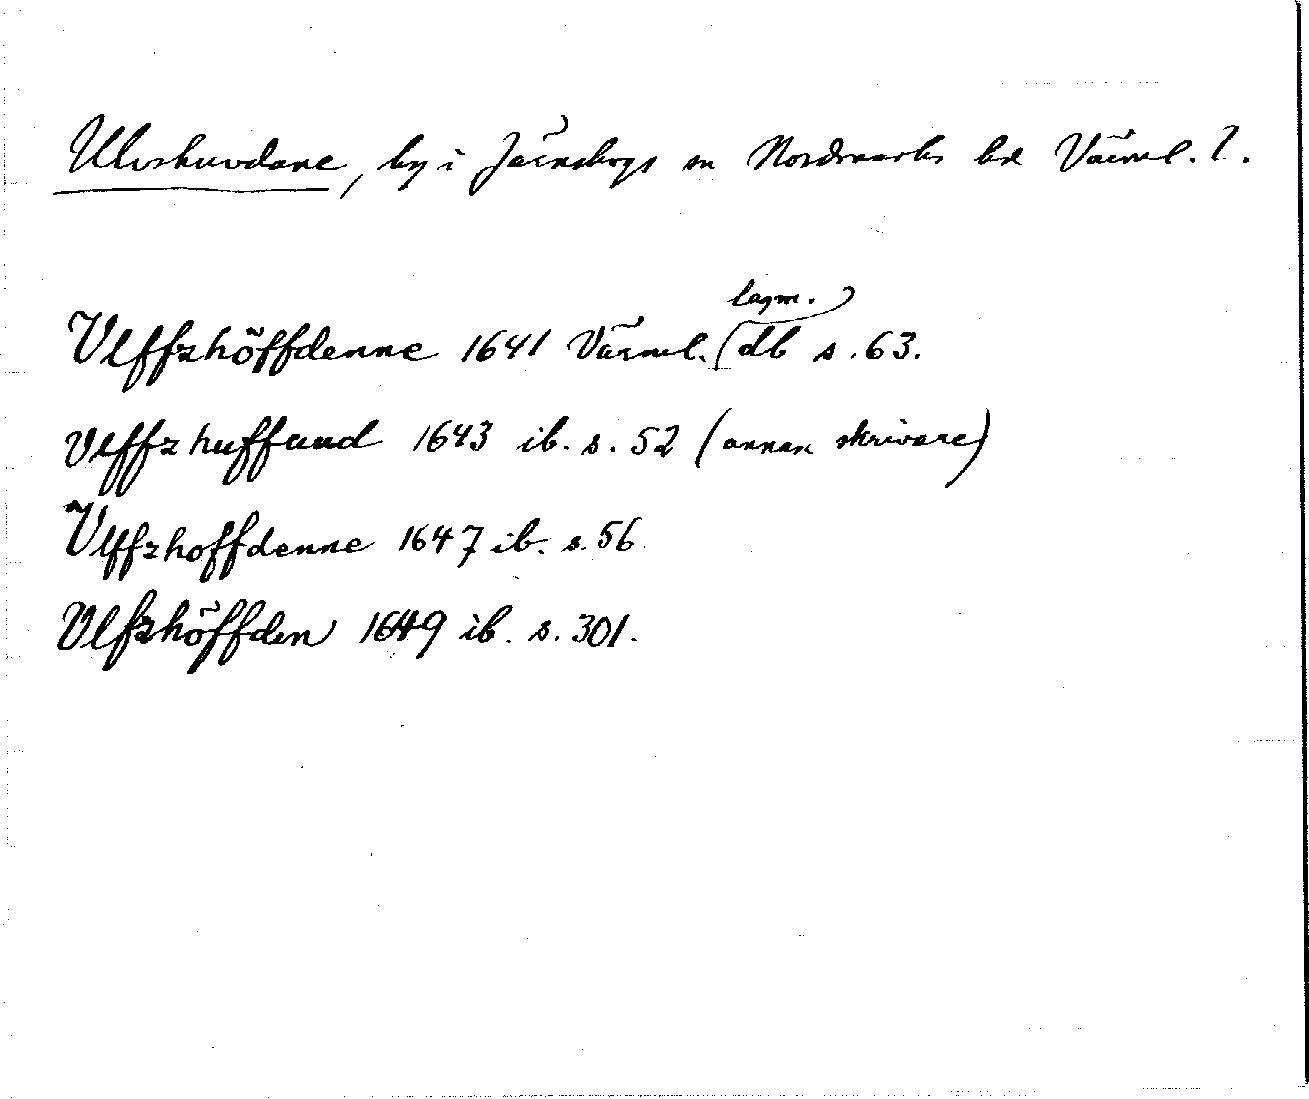 Ulvshuvdane, by i Järnskogs sn Nordmarks hd Värml. l.
Vlffzhöffdenne 1641 Värml. (lagm.) db s. 63.
vlffzhuffuud 1643 ib. s. 52 (annan skrivare)
Vlffzhoffdenne 1647 ib. s. 56
Vlfzhöffden 1649 ib. s. 301.